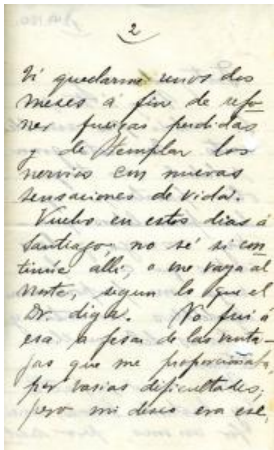 2
ví quedarme unos dos
meses á fin de repo-
ner fuerzas perdidas
y de templar los
nervios con nuevas
sensaciones de vida.
Vuelvo en estos dias a
Santiago, no sé si con
tinúe allí, o me vaya al
Norte, segun lo que el
Dr. diga. No fuí á
esa a pesar de las venta-
jas que me proporcionaba,
por varias dificultades;
pero mi deseo era ese,